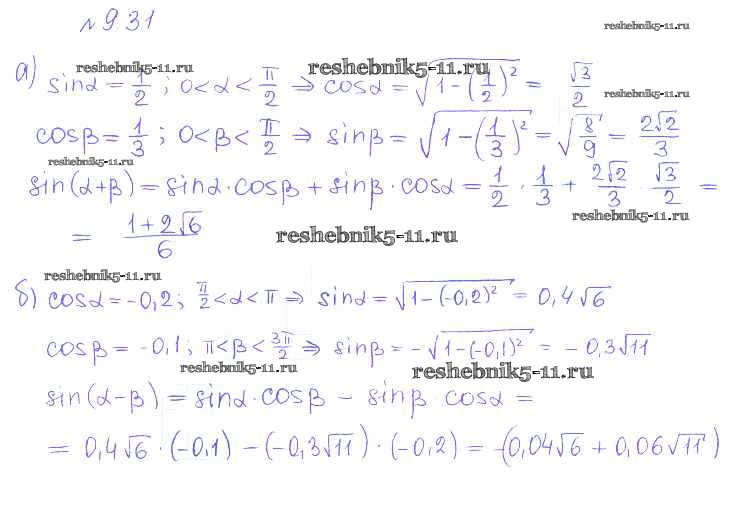 № 9.31
reshebnik5-11.ru
reshebnik5-11.ru reshebnik5-11.ru
а) sinα = 1/2 ; 0 < α < π/2 ⇒ cosα = √(1 - (1/2)²) = √3/2
reshebnik5-11.ru
cosβ = 1/3 ; 0 < β < π/2 ⇒ sinβ = √(1 - (1/3)²) = √(8/9) = 2√2/3
reshebnik5-11.ru
sin(α+β) = sinα · cosβ + sinβ · cosα = 1/2 · 1/3 + 2√2/3 · √3/2 =
reshebnik5-11.ru
= (1 + 2√6)/6
reshebnik5-11.ru
reshebnik5-11.ru
б) cosα = -0,2 ; π/2 < α < π ⇒ sinα = √(1-(-0,2)²) = 0,4√6
cosβ = -0,1 ; π < β < 3π/2 ⇒ sinβ = -√(1-(-0,1)²) = -0,3√11
reshebnik5-11.ru reshebnik5-11.ru
sin(α-β) = sinα · cosβ - sinβ · cosα =
= 0,4√6 · (-0,1) - (-0,3√11) · (-0,2) = -(0,04√6 + 0,06√11)